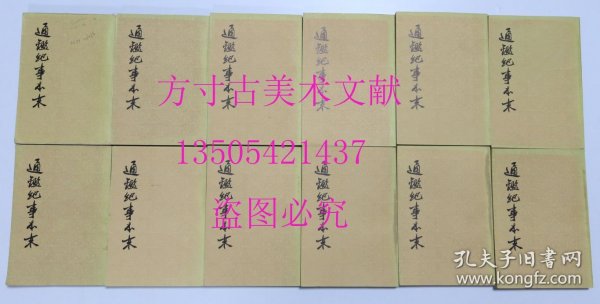 通鑑紀事本末
通鑑紀事本末
通鑑紀事本末
通鑑紀事本末
通鑑紀事本末
通鑑紀事本末
方寸古美术文献
13505421437
盗图必究
通鑑紀事本末
通鑑紀事本末
通鑑紀事本末
通鑑紀事本末
通鑑紀事本末
通鑑紀事本末
孔夫子旧书网
www.kongfz.com